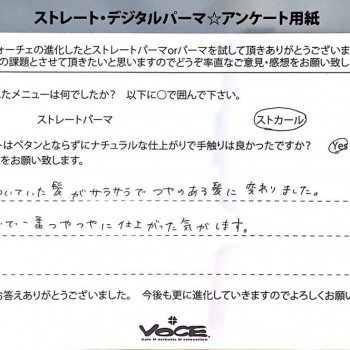 ストレート・デジタルパーマ☆アンケート用紙
ォーチェの進化したとストレートパーマorパーマを試して頂きありがとうございま
の課題とさせて頂きたいと思いますのでどうぞ率直なご意見・感想をお願い致し
たメニューは何でしたか？ 以下に○で囲んで下さい。
ストレートパーマ ストカール
トはペタンとならずにナチュラルな仕上がりで手触りは良かったですか？ Yes
をお願い致します。
いていた髪がサラサラでつやのある髪に変わりました。
で一番つやつやに仕上がった気がします。
お答えありがとうございました。 今後も更に進化していきますのでよろしくお願い
VOCE
hair & esthetic & relaxation